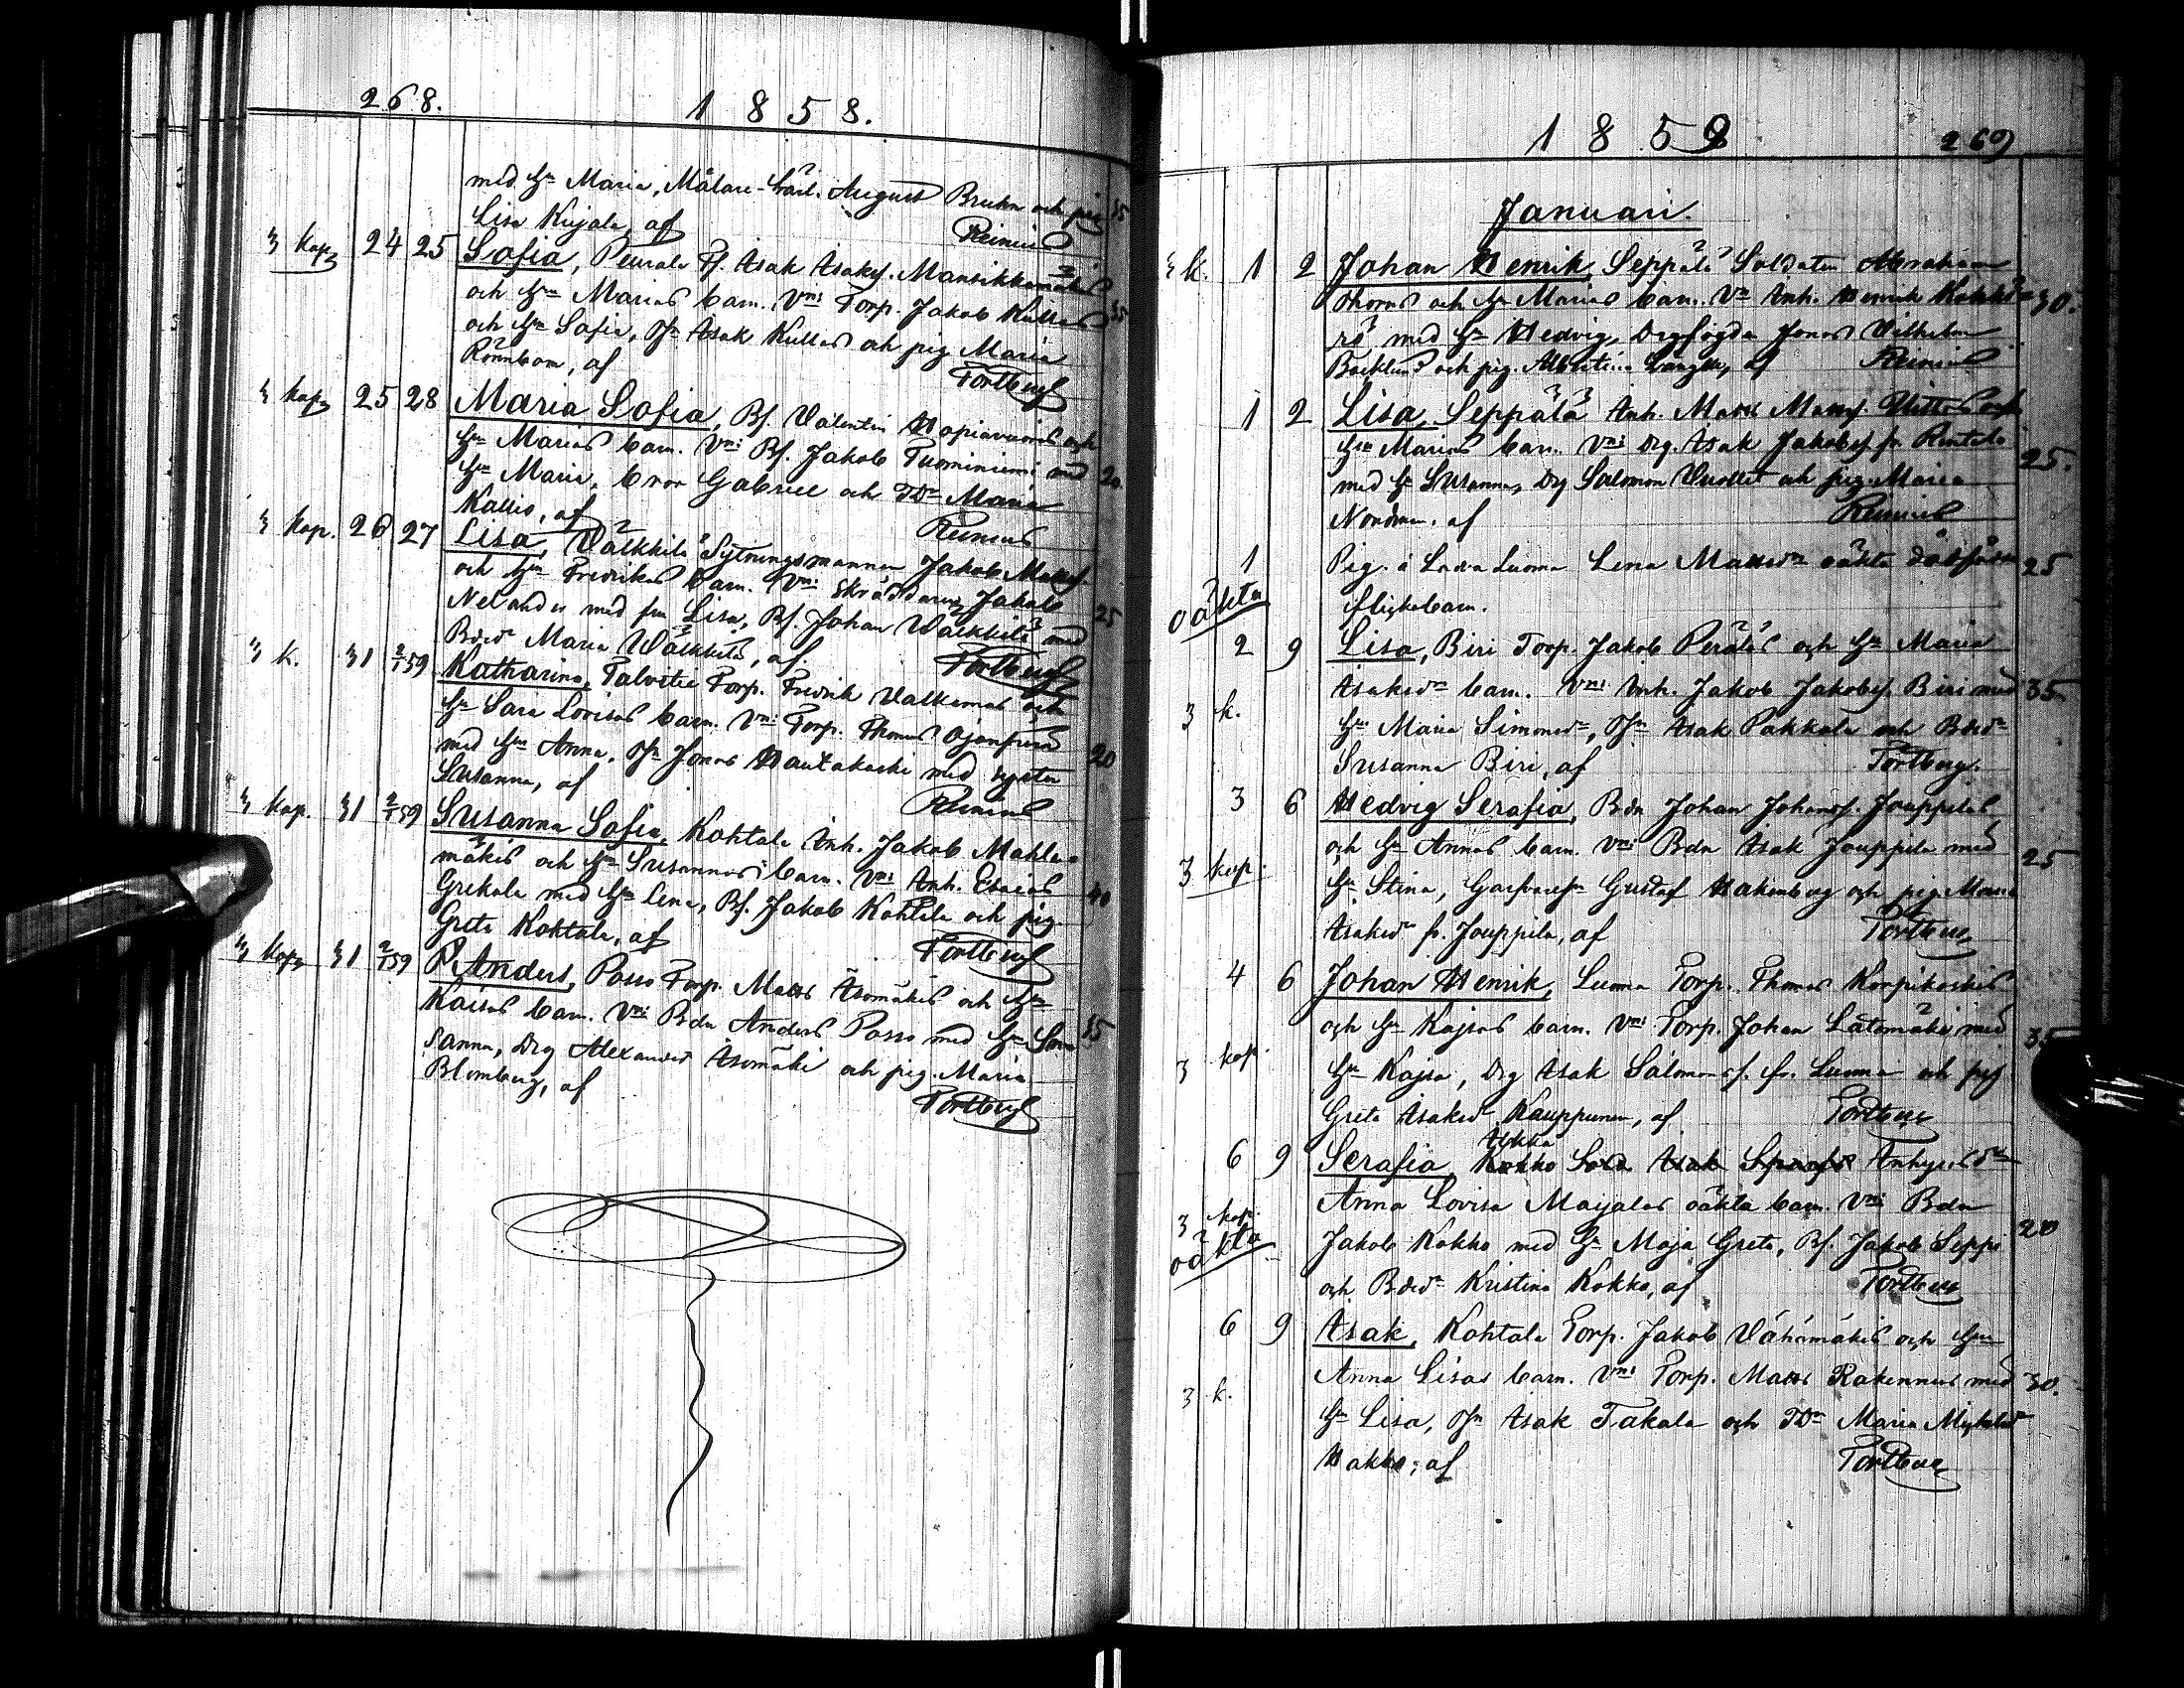 268. 1858.
med Hu Maria, Målare-Lärl. August Bruhn och pig 35
Lisa Kujala, af Reinius
3 kap 24 25 Sofia, Peurala Bf. Isak Isaksf. Mansikkamäkis
och Hu Marias barn. Vni Torp. Jakob Kullas 35
och Hu Sofia, Ofn Isak Kullas och pig Maria
Rönnbom, af Portberg
3 kap 25 28 Maria Sofia, Bf. Valentin Hapiavuoris och
Hu Marias barn. Vni Bf. Jakob Tuominiemi med
Hu Maria, bror Gabriel och TDr Maria 20
Kallio, af Reinius
3 kap. 26 27 Lisa, Välkkilä Sytningsmannen Jakob Mattsf.
och Hu Fredrikas barn. Vni Skräddaren Jakob
Nelander med fru Lisa, Bf. Johan Välkkilä med 25
Bdr Maria Välkkilä, af Portberg
3 k. 31 2/1 59 Katharina, Talvitie Torp. Fredrik Valkamas och
Hu Sara Lovisas barn. Vni Torp. Thomas Ojanperä
med Hu Anna, Ofn Jonas Hautakoski med syster 20
Susanna, af Reinius
3 kap. 31 2/1 59 Susanna Sofia, Kohtala Inh. Jakob Mahla-
mäkis och Hu Susannas barn. Vni Inh. Esaias
Grekula med Hu Lena, Bf. Jakob Kohtala och pig 40
Greta Kohtala, af Portberg
3 kap 31 2/1 59 P. Anders, Passo Torp. Matts Isomäkis och Hu
Kaisas barn. Vni Bdn Anders Passo med Hu Su- 35
sanna, Drg Alexander Isomäki och pig. Maria
Blomberg, af Portberg
1859 269
Januari.
3 k. 1 2 Johan Henrik, Seppälä Soldaten Abraham
Thorns och Hu Marias barn. Vni Inh. Henrik Kokko- 30.
rö med Hu Hedvig, Drgfogda Jonas Wilhelm
Backlund och pig. Albertina Lången, af Reinius
1 2 Lisa, Seppälä Inh. Matts Mattsf. Uittos och
Hu Marias barn. Vni Drg. Isak Jakobsf. fr. Rintala 25.
med Hu Susanna, Drg Salomon Vuollet och pig. Maria
Nordman, af Reinius
1 Pig. å Luoma Lena Mattsdr oäkta dödfödda 25
oäkta flickebarn.
2 9 Lisa, Biri Torp. Jakob Peräläs och Hu Maria
Isaksdr barn. Vni Inh. Jakob Jakobsf. Biri med 35
3 k. Hu Maria Simonsdr, Ofn Isak Pakkala och Bdr
Susanna Biri, af Portberg.
3 6 Hedvig Serafia, Bdn Johan Johansf. Jouppilas
och Hu Annas barn. Vni Bdn Isak Jouppila med 25
3 kap. Hu Stina, Garfvare Gustaf Hakenberg och pig Maria
Isaksdr fr. Jouppila, af Portberg
4 6 Johan Henrik, Luoma Torp. Thomas Korpikoskis
och Hu Kajsas barn. Vni Torp. Johan Latomäki med 35
3 kap. Hu Kajsa, Drg Isak Salomonsf. fr. Luoma och pig
Greta Isaksdr Kauppinen, af Portberg
6 9 Serafia, Kokko Inhyses dr
Anna Lovisa Maijalas oäkta barn. Vni Bdn
3 kap. oäkta Jakob Kokko med Hu Maja Greta, Bf. Jakob Seppä 20
och Bdr Kristina Kokko, af Portberg
6 9 Isak, Kohtala Torp. Jakob Vähämäkis och Hu
Anna Lisas barn. Vni Torp. Matts Rakennus med 30.
3 k. Hu Lisa, Ofn Isak Takala och TDr Maria Mickelsdr
Hakko, af Portberg